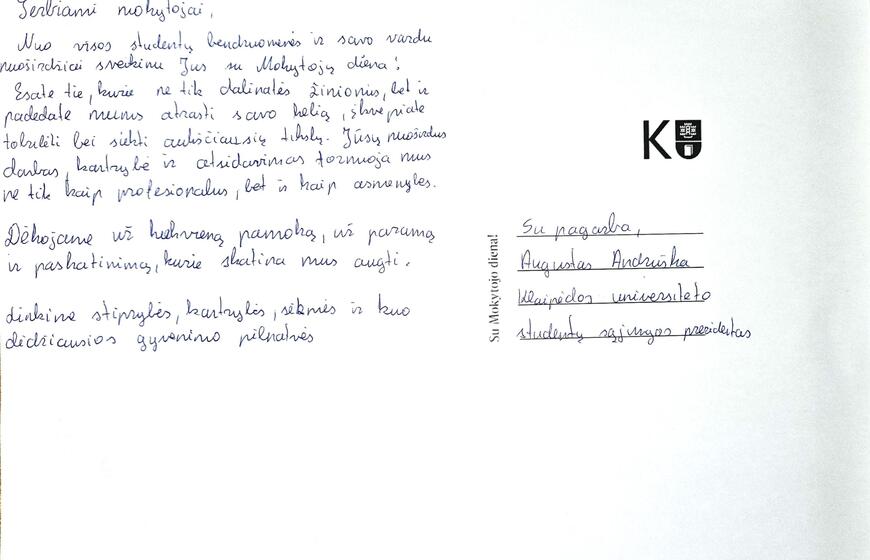 Gerbiami mokytojai,
Nuo visos studentų bendruomenės ir savo vardu
nuoširdžiai sveikinu Jus su Mokytojų diena!
Esate tie, kurie ne tik dalinatės žiniomis, bet ir
padedate mums atrasti savo kelią, įkvepiate
tobulėti bei siekti aukščiausių tikslų. Jūsų nuoširdus
darbas, kantrybė ir atsidavimas formuoja mus
ne tik kaip profesionalus, bet ir kaip asmenybes.
Dėkojame už kiekvieną pamoką, už paramą
ir paskatinimą, kurie skatina mus augti.
Linkime stiprybės, kantrybės, sėkmės ir kuo
didžiausios gyvenimo pilnatvės
KU
Su Mokytojo diena!
Su pagarba,
Augustas Andruška
Klaipėdos universiteto
studentų sąjungos prezidentas